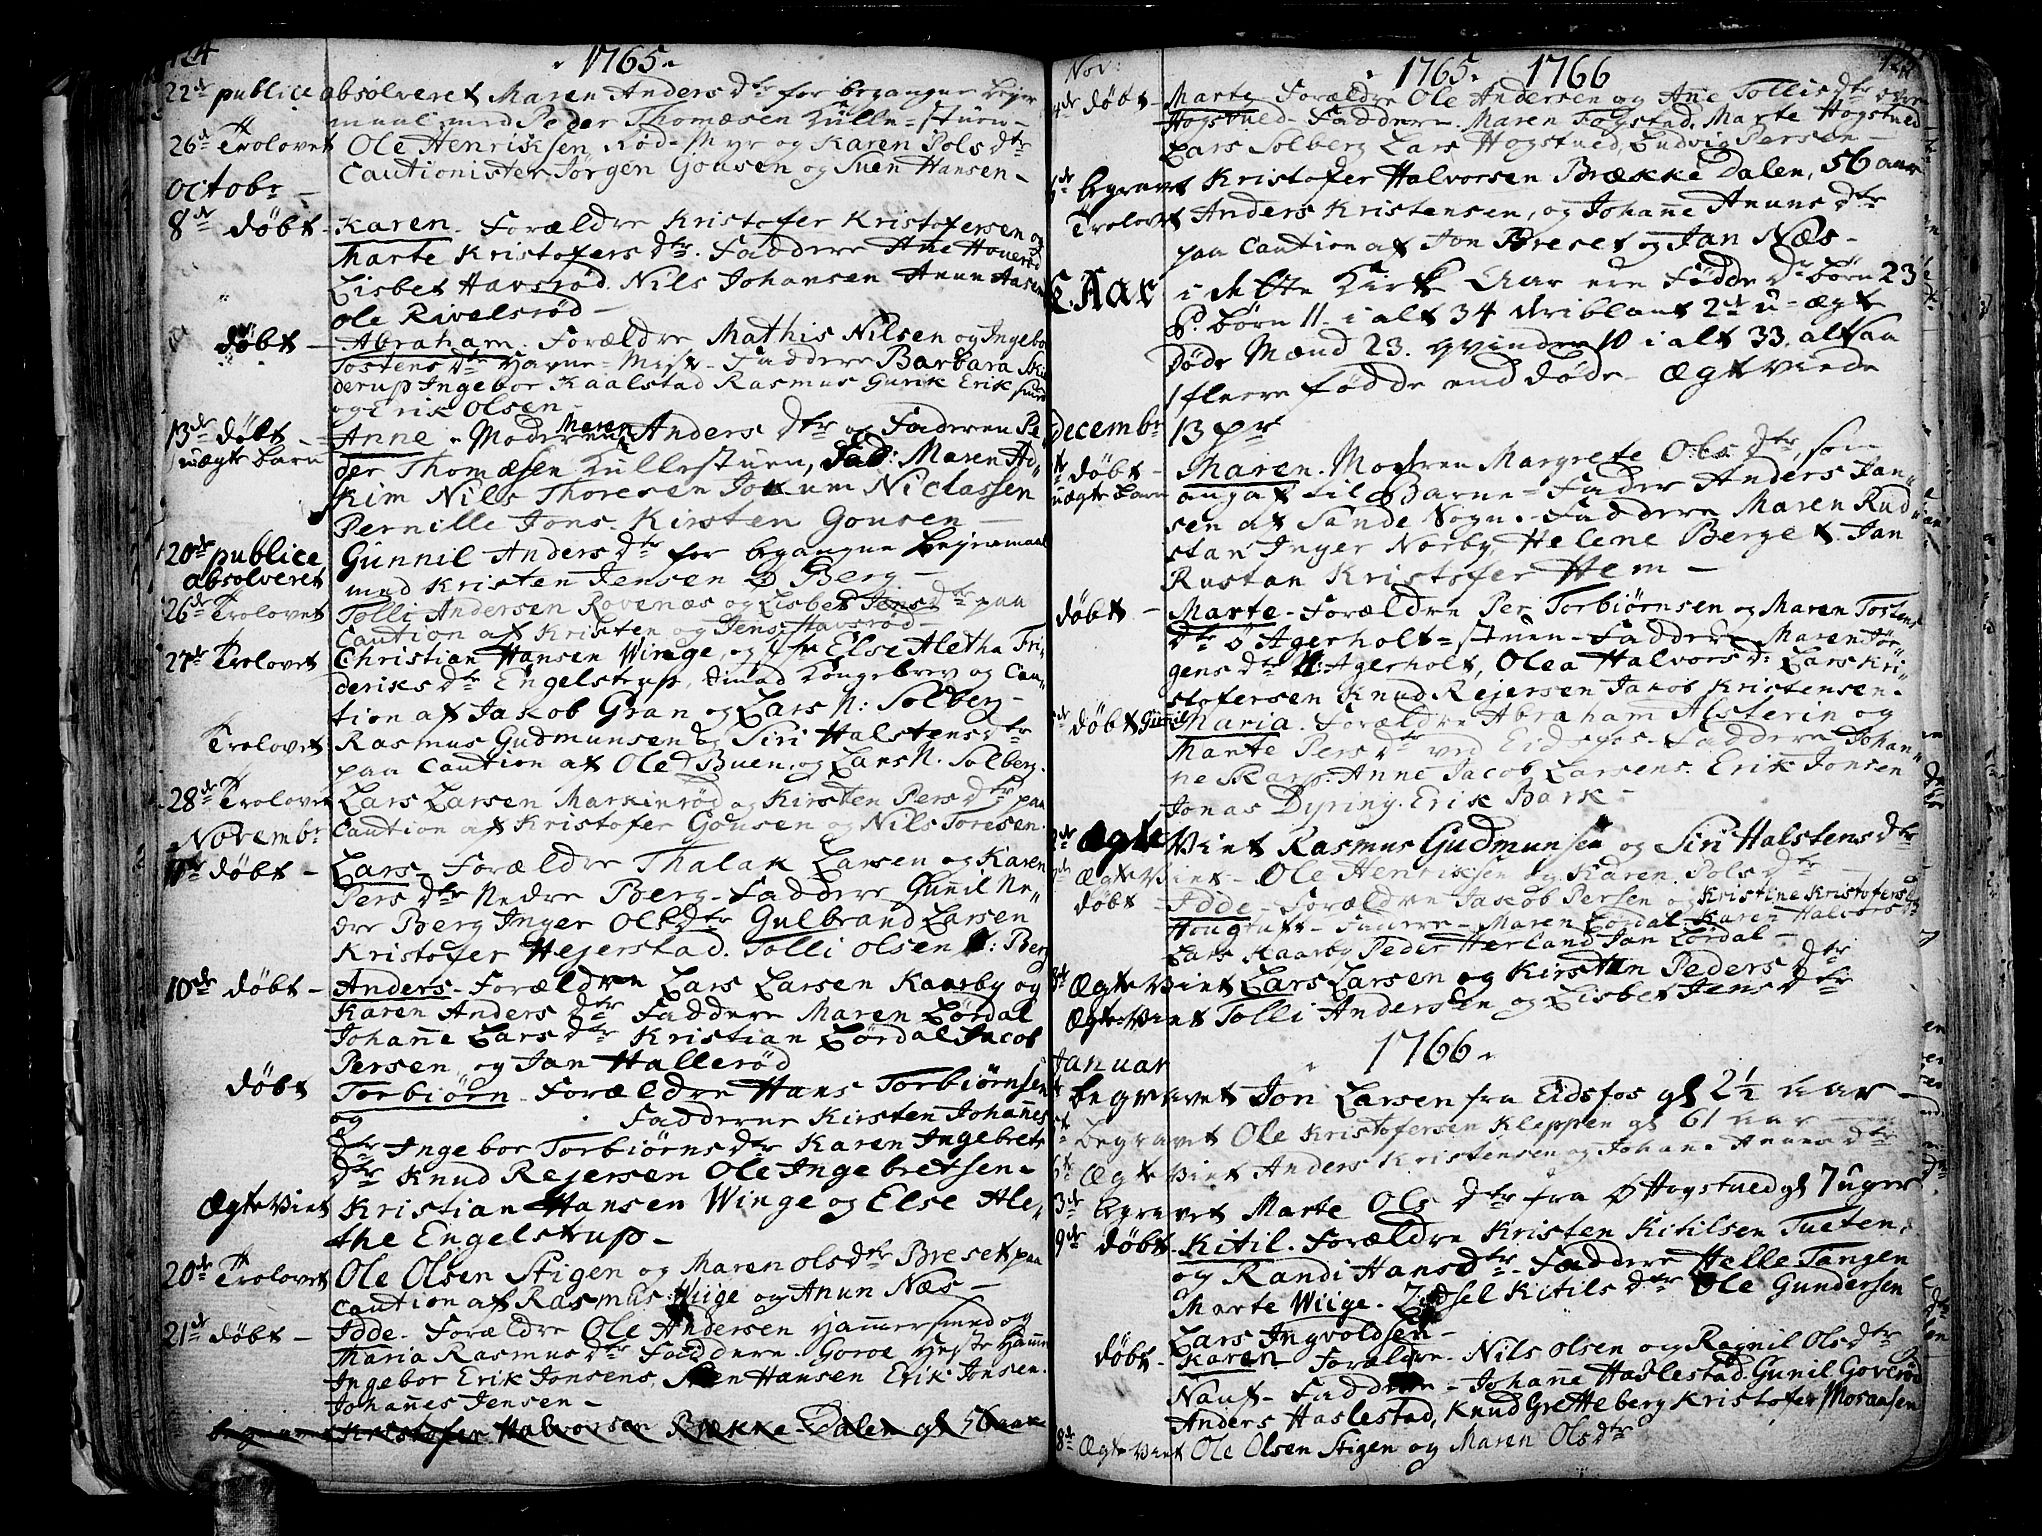 124
1765.
22de publice absolveret Maren Anders Dtr for begangne Leier
maal med Peder Thomæsen Hulle-stuen-
26de Trolovet Ole Henriksen Rød-Myr og Karen Pols Dtr
Cautionister Jørgen Gousen og Suen Hansen-
Octobr
8de døbt - Karen. Forældre Kristofer Kristofersen og
Marte Kristofers Dtr. Faddere Ane Houerød
Lisbet Havsrød. Nils Johansen Anun Aasen
Ole Rivelsrød-
døbt - Abraham. Forældre Mathis Nilsen og Ingebor
Tostens Dtr Faddere Barbara
derup Ingebor Kaalstad Rasmus Gurik Erik smed
og Erik Olsen-
13de døbt - Anne. Moderen Maren Anders Dtr og Faderen Pe-
uægte barn der Thomæsen Hullestuen, Fad: Maren
Kim Nils Thoresen Jokum Niclassen
Pernille Jons. Kirsten Gousen-
20de publice Gunnil Anders Dtr for begangne Lejremaal
absolveret med Kristen Jensen Ø Berg-
26de Trolovet Tolli Andersen Rovenæs og Lisbet Jens Dtr paa
Caution af Kristen og Jens Havsrød-
27de Trolovet Christian Hansen Winge, og Else Aletha Fri-
deriks Dtr Engelstrup, Kongebrev og Cau-
tion af Jakob Gran og Lars N: Solberg-
Trolovet Rasmus Gudmunsen og Siri Halstens Dtr
paa Caution af Ole Buen, og Lars N. Solberg.
28de Trolovet Lars Larsen Markinrød og Kirsten Pers Dtr paa
Caution af Kristofer Gousen og Nils Toresen.
Novembr
døbt - Lars. Forældre Thalak Larsen og Karen
Pers Dtr Nedre Berg. Faddere Gunil Ne-
dre Berg Inger Ols Dtr Gulbrand Larsen
Kristofer Hejerstad. Tolli Olsen N: Berg
10de døbt - Anders. Forældre Lars Larsen Kaarby og
Karen Anders Dtr Faddere Maren Lørdal
Johanne Lars Dtr Kristian Lørdal Jacob
Persen og Jan Hallerød
døbt Torbiørn. Forældre Hans Torbiørnsen
og Faddere Kirsten Johannes
Dtr Ingebor Torbiørns Dtr Karen Ingebrets
Dtr Knud Rejersen Ole Ingebretsen.
Ægteviet Kristian Hansen Winge og Else Ale-
the Engelstrup-
20de Trolovet Ole Olsen Stigen og Maren Ols Dtr Breset paa
Caution af Rasmus Wiige og Anun Næs-
21de døbt - Idde. Forældre Ole Andersen Hammersmed og
Maria Rasmus Dtr Faddere. Goroe
Ingebor Erik Jonsens, Sven Hansen Erik Jonsen.
Johannes Jensen-
Kristofer Halvorsen Brække-Dalen gl 56 aar
Nov:
1765. 1766
døbt - Marte. Forældre Ole Andersen og Ane Tollis Dtr
Hogstued- Faddere. Maren Fogstad. Marte Hogstued
Lars Solberg Lars Hogstued, Ludvig Persen-
begravet Kristofer Halvorsen Brække Dalen, 56 aar
Trolovet Anders Kristensen, og Johanne Anuns Dtr
paa Caution af Jon Breset og Jan Næs-
K. Aar i dette Kirke Aar ere Fødde Dr. børn 23
P. børn 11. i alt 34 deriblant 2de u-ægte
Døde Mænd 23. qvinder 10 i alt 33. altsaa
1 fleere fødde end døde- Ægteviede
Decembr 13 pr
døbt - Maren. Moderen Margrete Obs Dtr, som
uægte barn angaf til Barne-Fader Anders Jan-
sen af Sande Sogn. Faddere Maren Rud-
stan Inger Norby, Helene Berget. Jan
Rustan Kristofer Hem-
døbt - Marte. Forældre Per Torbiørnsen og Maren Tostens
Dtr Ø Agerholt-stuen. Faddere Maren Jør-
gens Dtr N: Agerholt, Olea Halvors D: Lars Kri-
stofersen Knud Rejersen Jakob Kristensen.
døbt Gunnil Maria. Forældre Abraham Alsterin og
Marte Pers Dtr ved Eidsfos. Faddere Johan-
ne Skarp. Anne Jacob Larsens. Erik Jonsen
Jonas Dyring. Erik Bark-
Ægte Viet Rasmus Gudmunsen og Siri Halstens Dtr
Ægte Viet - Ole Henriksen og Karen Pols Dtr
døbt - Idde. Forældre Jakob Persen og Kristine Kristofers D
Faddere - Maren Lørdal Karen Halvors Dtr
Lars Kaarby Peder Herland Jan Lørdal-
Ægte Viet Lars Larsen og Kirsten Peders Dtr
Ægte Viet Tolli Andersen og Lisbet Jens Dtr
1766.
Januar
begravet Jon Larsen fra Eidsfos gl 2½ aar-
begravet Ole Kristofersen Kleppen gl 61 aar
Ægte Viet Anders Kristensen og Johane Anuns Dtr
begravet Marte Ols Dtr fra Ø Hogstued gl 7 uger
døbt. Kitil. Forældre Kristen Kitilsen Tueten.
og Randi Hans Dtr. Faddere Helle Tangen
Marte Wiige. Zidsel Kitils Dtr Ole Gundersen
Lars Ingvoldsen-
døbt - Karen Forældre. Nils Olsen og Ragnil Ols Dtr
Nauf- Faddere- Johanne Haslestad. Gunil Goverød
Anders Haslestad, Knud Gretteberg Kristofer Moraasen
Ægte Viet Ole Olsen Stigen og Maren Ols Dtr